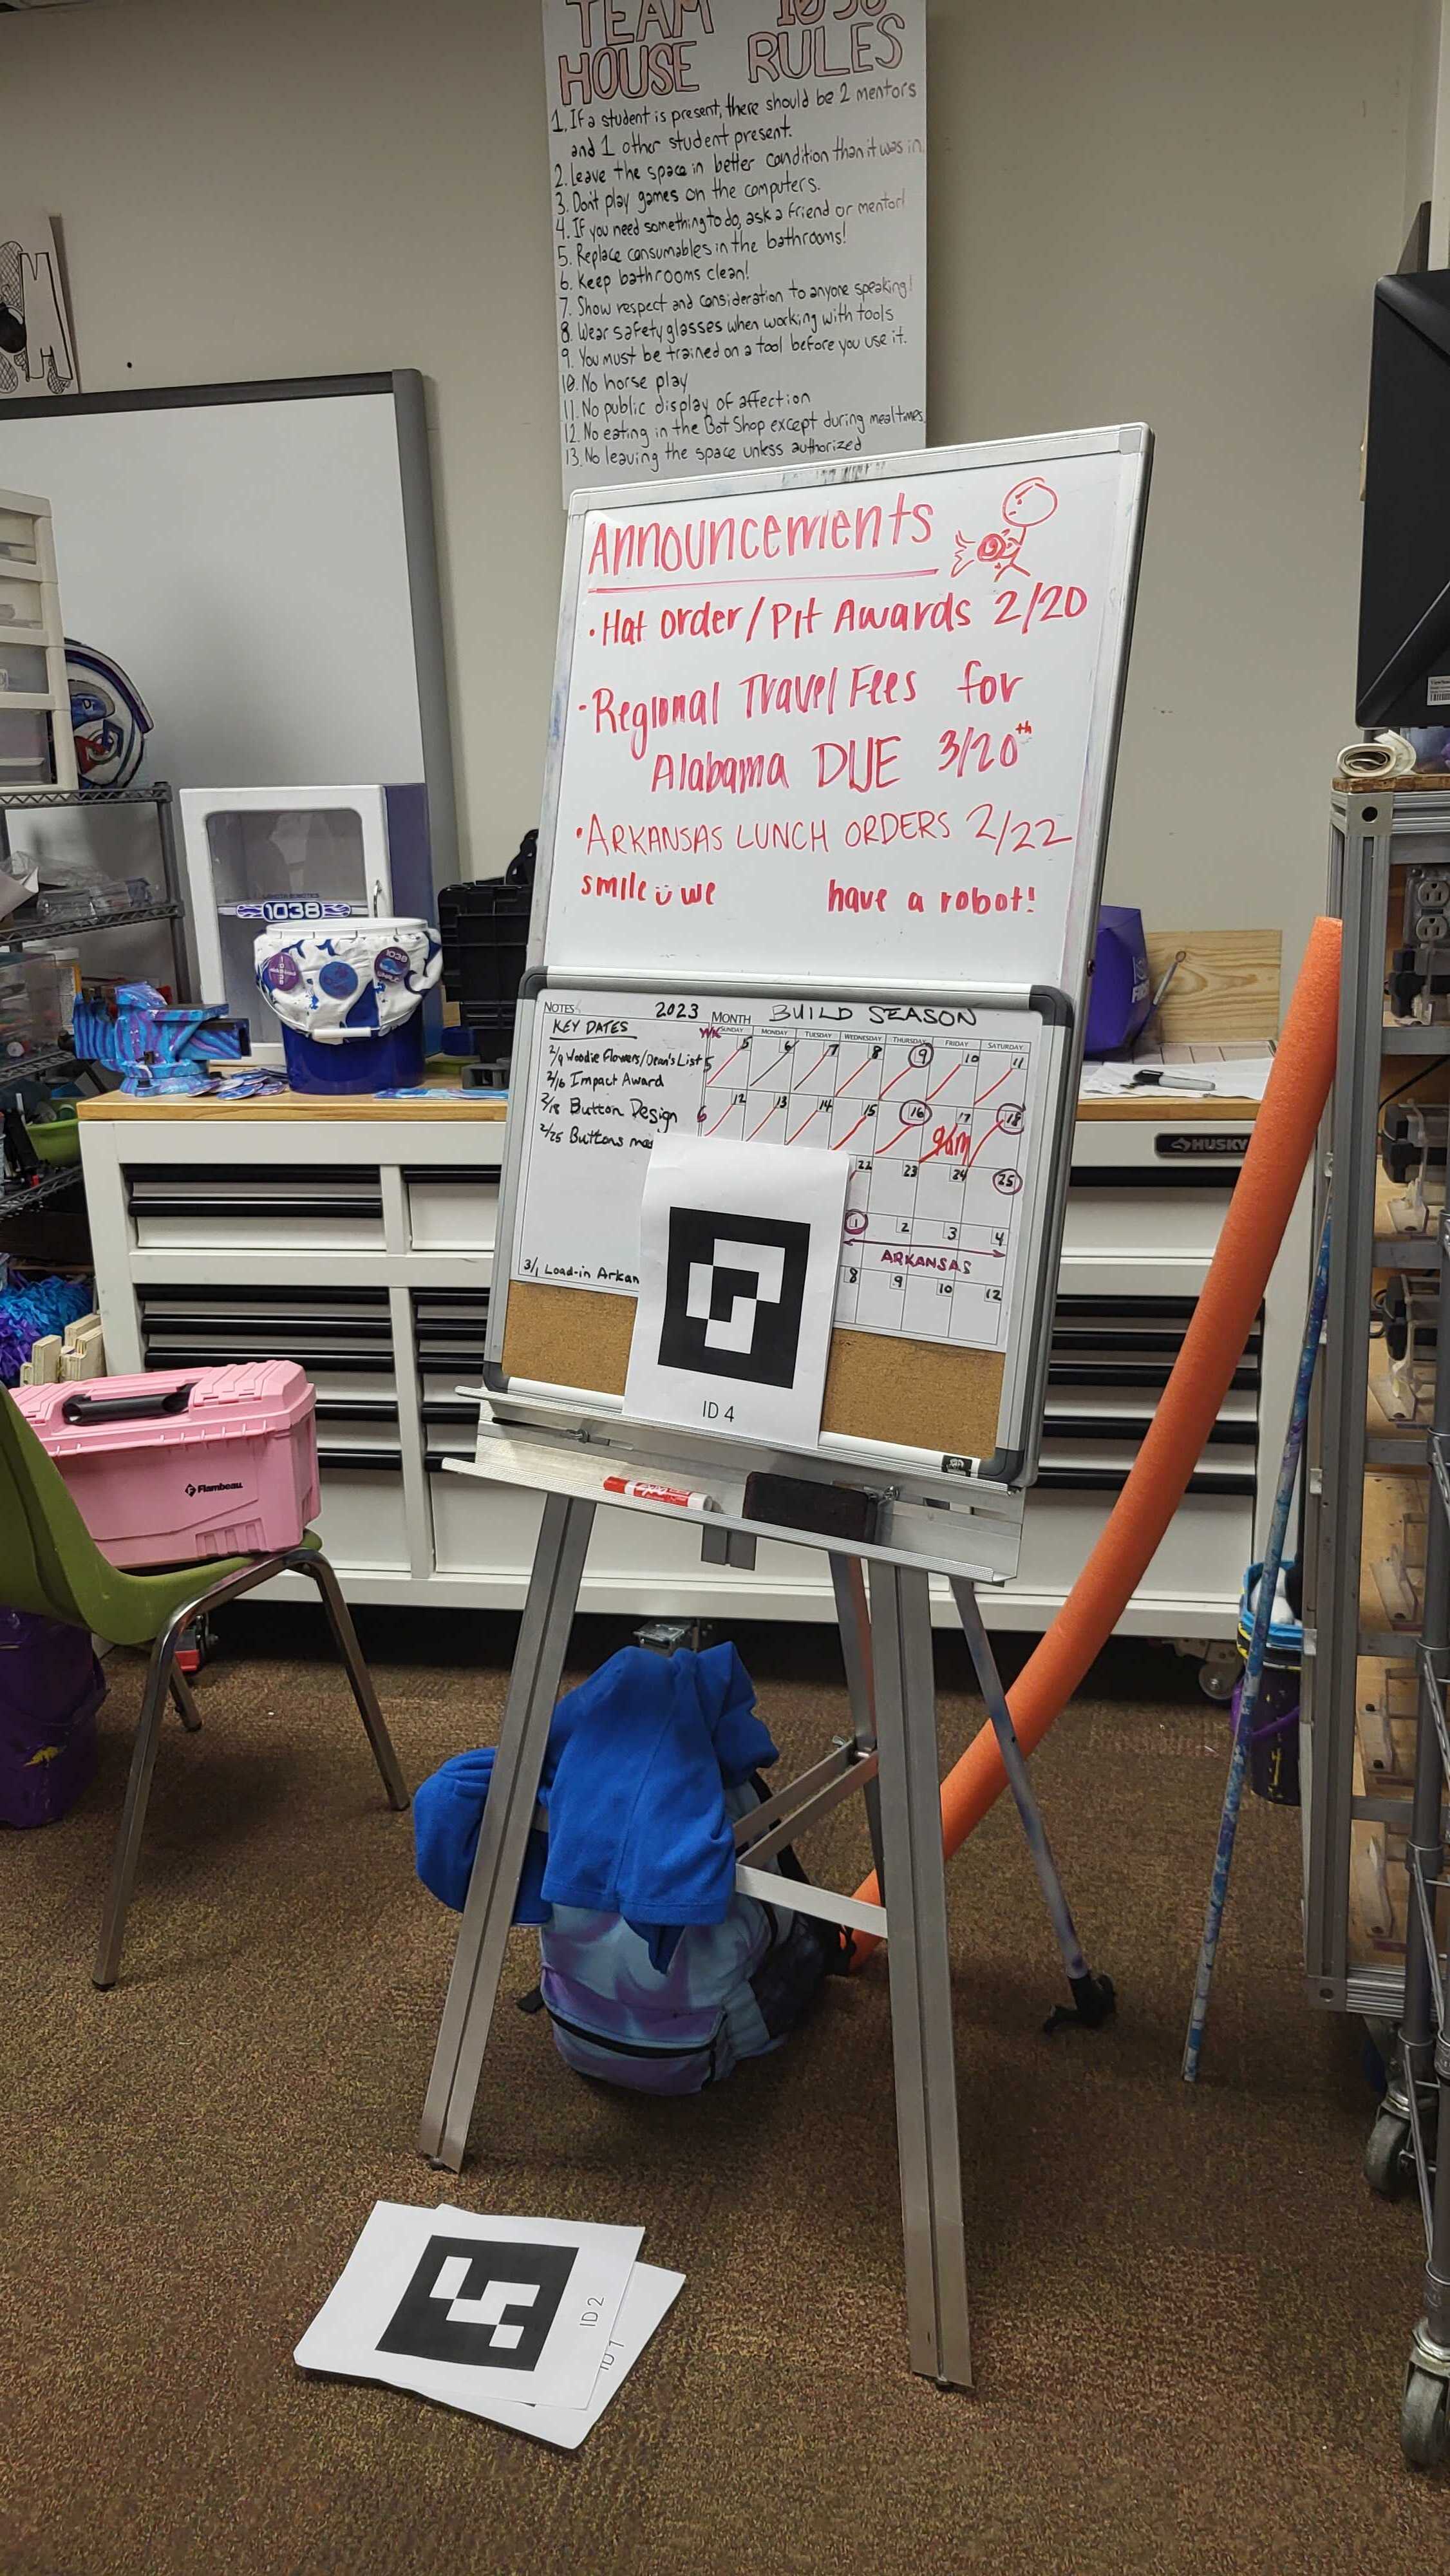 TEAM 1038
HOUSE RULES
1. If a student is present, there should be 2 mentors
and 1 other student present.
2. Leave the space in better condition than it was in.
3. Don't play games on the computers.
4. If you need something to do, ask a friend or mentor!
5. Replace consumables in the bathrooms!
6. Keep bathrooms clean!
7. Show respect and consideration to anyone speaking!
8. Wear safety glasses when working with tools
9. You must be trained on a tool before you use it.
10. No horse play
11. No public display of affection
12. No eating in the Bot Shop except during mealtimes.
13. No leaving the space unless authorized
Announcements
• Hat Order/Pit Awards 2/20
• Regional Travel Fees for
Alabama DUE 3/20th
• ARKANSAS LUNCH ORDERS 2/22
smile we have a robot!
1038
1038
NOTES 2023 MONTH BUILD SEASON
KEY DATES
2/9 Woodie Flowers/Dean's List
2/16 Impact Award
2/18 Button Design
2/25 Buttons
3/1 Load-in Arkan
WK SUNDAY MONDAY TUESDAY WEDNESDAY THURSDAY FRIDAY SATURDAY
5 5 6 7 8 9 10 11
6 12 13 14 15 16 17 18
9am
22 23 24 25
1 2 3 4
ARKANSAS
8 9 10 12
HUSKY
FIRST
ID 4
Flambeau
ID 2
ID 1